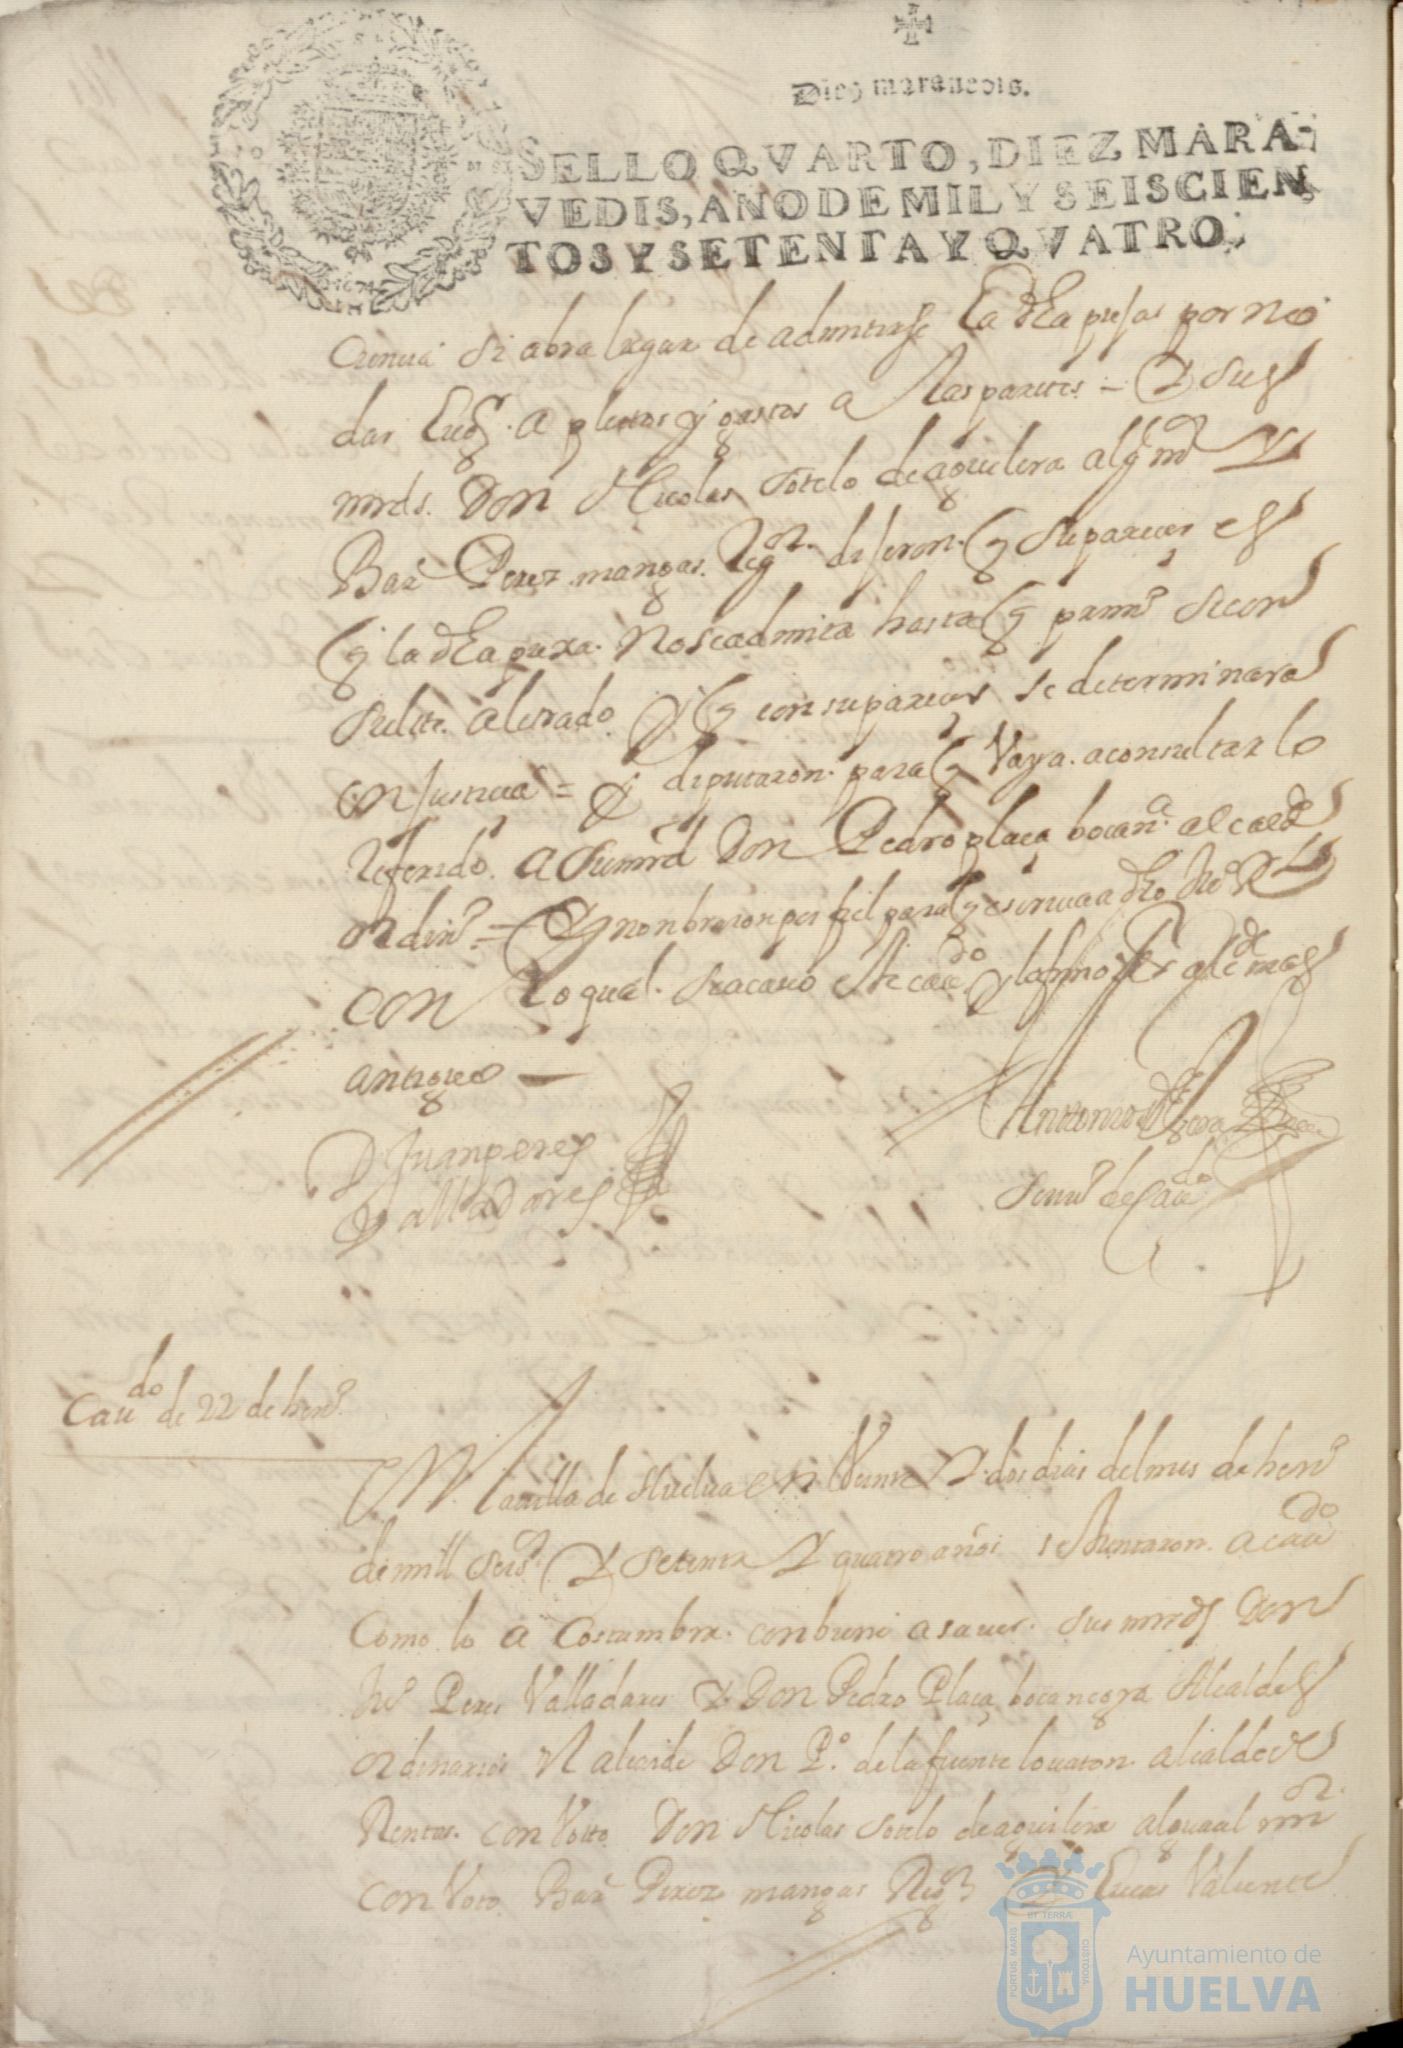 Diez maravedis.
SELLO QVARTO, DIEZ MARA-
VEDIS, AÑO DE MIL Y SEISCIEN
TOS Y SETENTA Y QVATRO.
si abra lugar de admitirse la dha por no
dar lugr. a pleitos y gastos a las partes = Y sus
mrds. Don Nicolas sotelo de aguilera alg mr Y
Bar Perez mangas. Regor. dijeron. q su parecer es
q la dha puxa. no se admita hasta q primo se con
sulte. a letrado. Y q con su parecer se determinara
en justicia = Y diputaron. para q Vaya. a consultar lo
referido. a su mrd Don Pedro plaça bocana. alcalde
ordino. = Y nonbraron por fiel para q
con lo qual. se acavo este caudo y lo firmo el alcde mas
antiguo —
D Juan peres
Valladares
Antonio de
de Caudo
Caudo de 22 de heno.
En la villa de Huelva en Veinte Y dos dias del mes de heno
de mill seiso Y setenta Y quatro años se Juntaron a caudo
Como lo a Costumbre. conbiene a saver. sus mrds Don
Juo Peres Valladares Y Don Pedro Plaça bocanegra Alcaldes
ordinarios el alcaide Don Po. de la fuente lovaton alcalde de
Rentas. con Voto Don Nicolas sotelo de aguilera alguacil mor
con Voto Bar Perez mangas Regor Y Lucas Valiente
PORTUS MARIS
ET TERRÆ
CUSTODIA
Ayuntamiento de
HUELVA